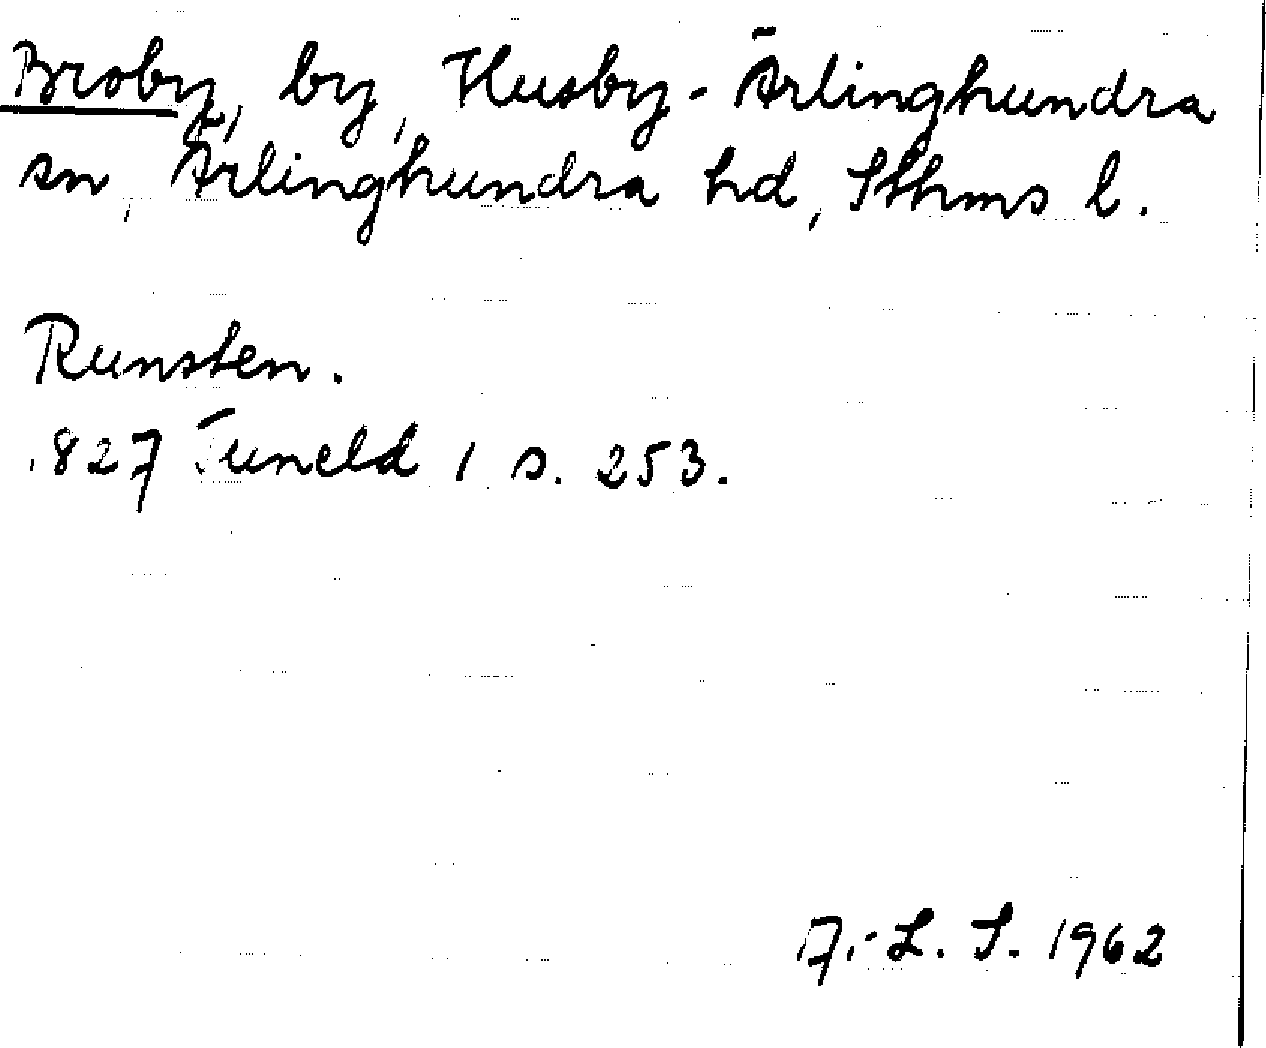 Broby, by, Husby-Ärlinghundra
sn, Ärlinghundra hd, Sthms l.
Runsten.
1827 Tuneld 1 s. 253.
A.-L. S. 1962